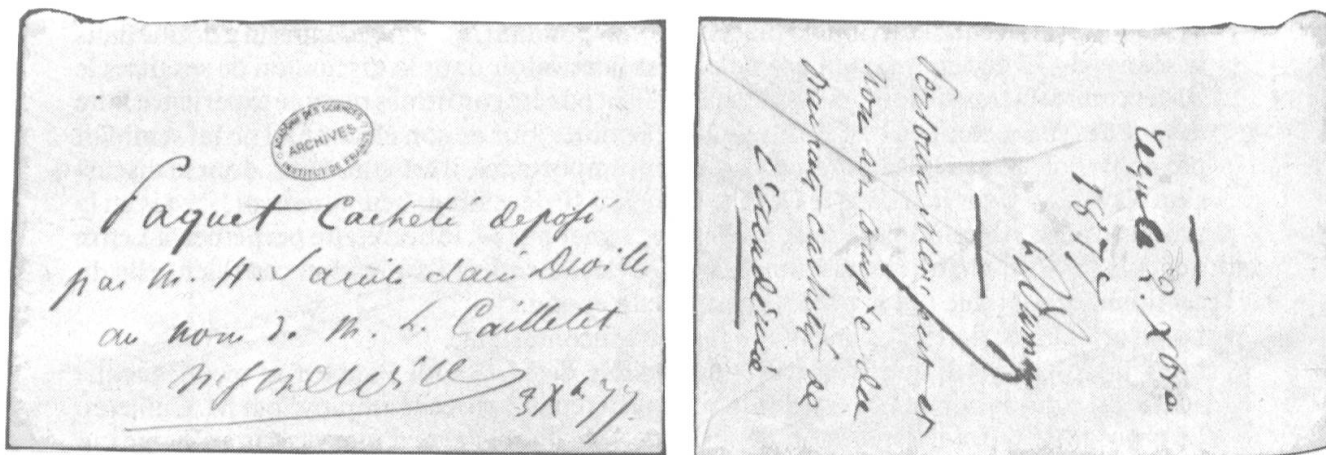 ACADÉMIE DES SCIENCES
ARCHIVES
INSTITUT DE FRANCE
Paquet Cacheté déposé
par M. H Sainte Claire Deville
au nom de M. L. Cailletet
3 Xbre 77.
Reçu le 3 Xbre
1877
Dumas
l'ouverture du
paquet cacheté de
l'académie